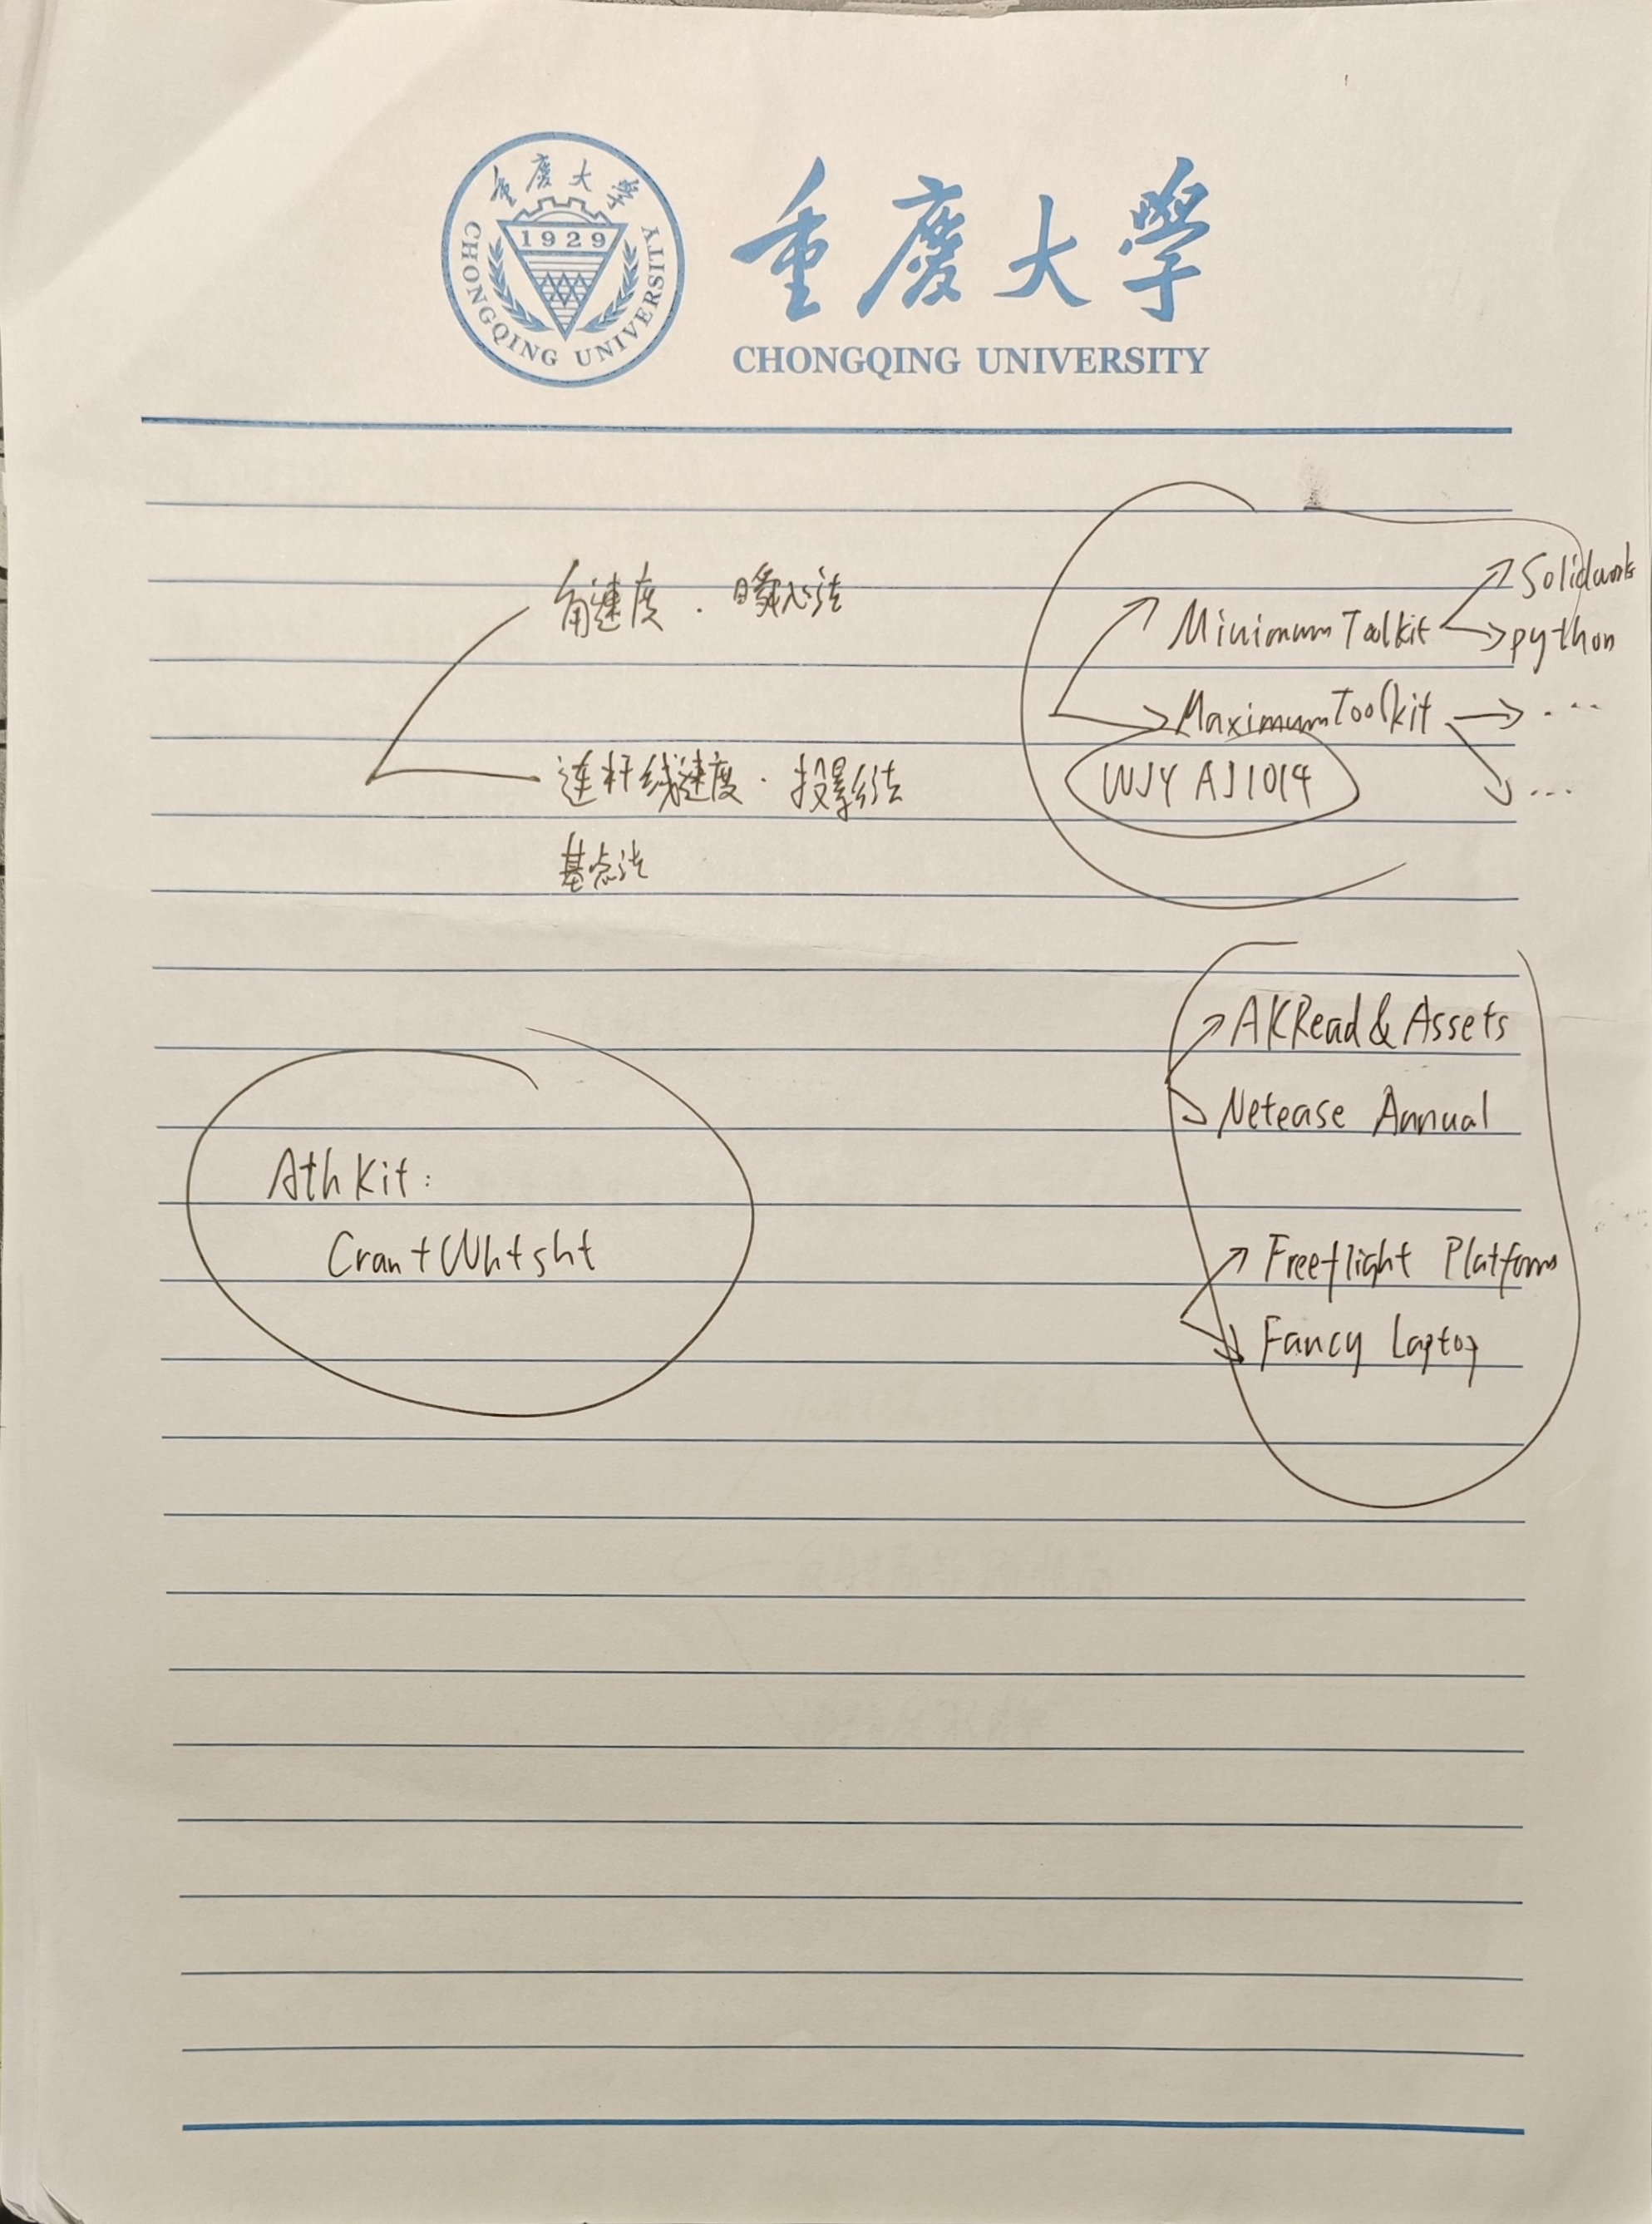 重慶大學
CHONGQING UNIVERSITY
1929
重慶大學
CHONGQING UNIVERSITY
角速度 . 瞬心法
连杆线速度 . 投影法
基点法
Minimum Toolkit
Solidwork
python
Maximum Toolkit
...
...
WJY AJ1014
AKRead & Assets
Netease Annual
Freeflight Platform
Fancy Laptop
Ath Kit:
Cran+Wh+sht